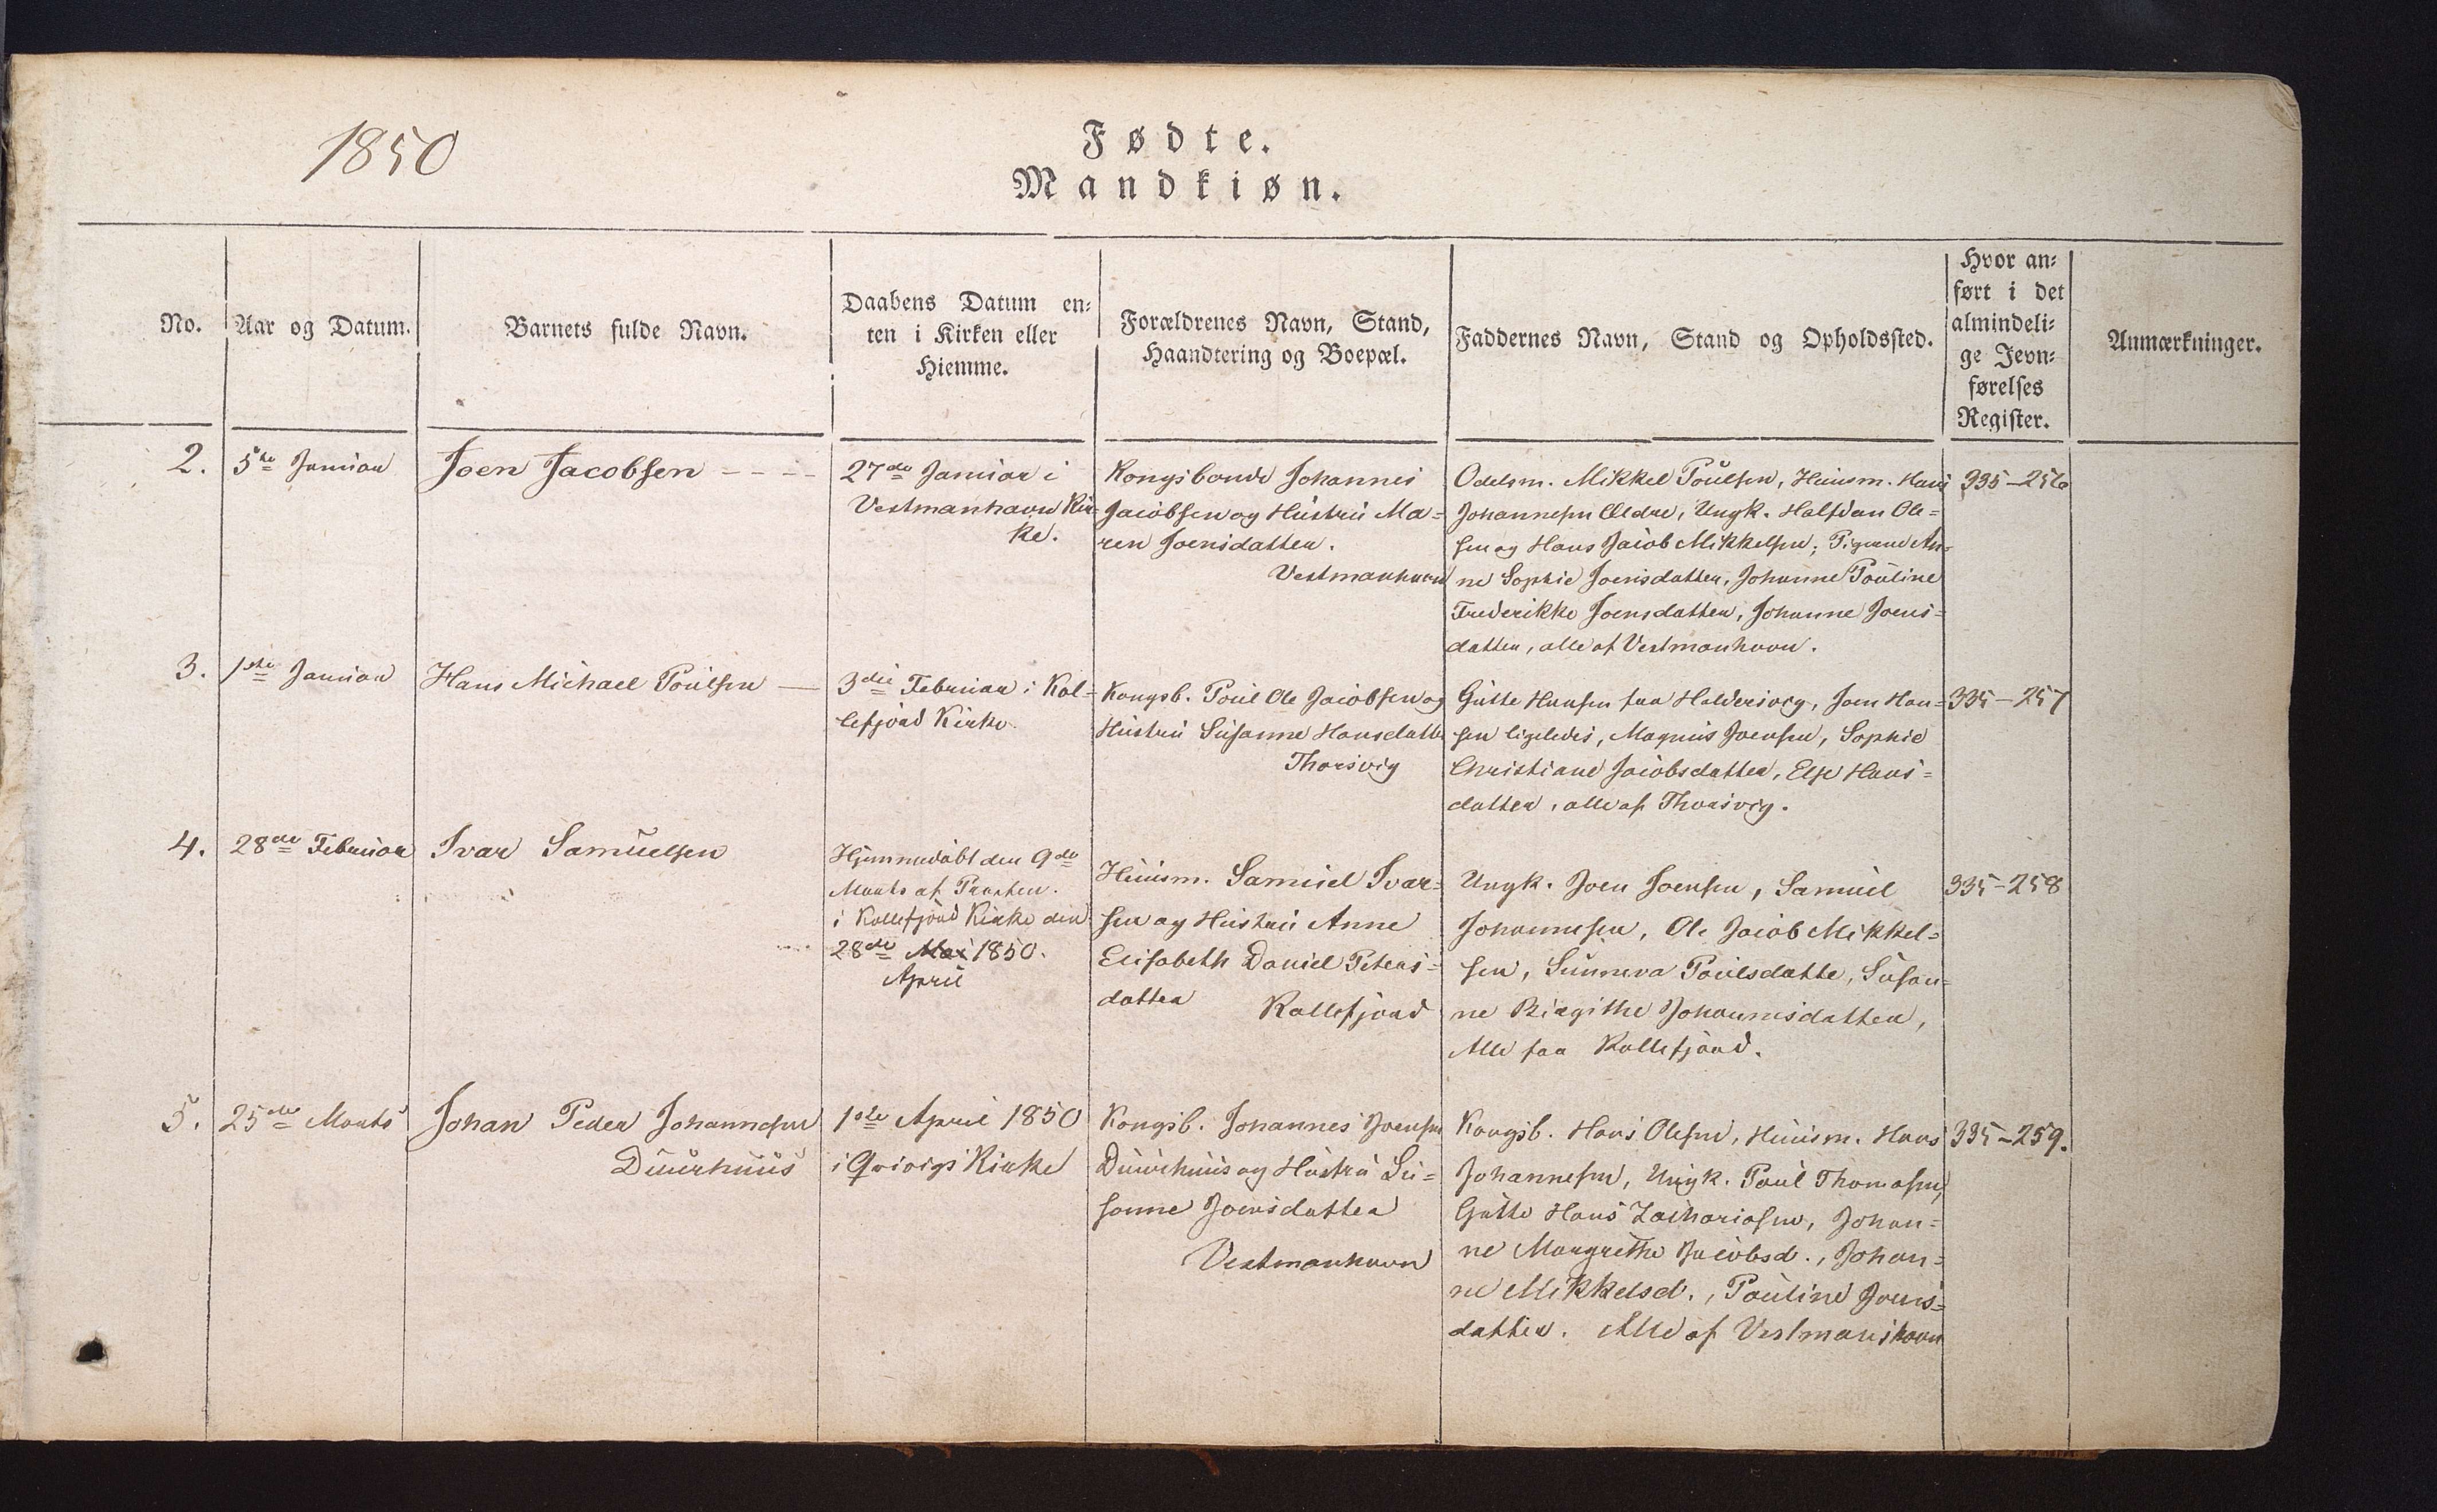 1850
Fødte.
Mandkiøn.
No.
Aar og Datum.
Barnets fulde Navn.
Daabens Datum en-
ten i Kirken eller
Hiemme.
Forældrenes Navn, Stand,
Haandtering og Boepæl.
Faddernes Navn, Stand og Opholdssted.
Hvor an-
ført i det
almindeli-
ge Jevn-
førelses
Register.
Anmærkninger.
2.
5te Januar
Joen Jacobsen - - - -
27de Januar i
Vestmanhavn Kir-
ke.
Kongsbonde Johannes
Jacobsen og Hustru Ma=
ren Joensdatter.
Vestmanhavn
Odelsm. Mikkel Poulsen, Huusm. Hans
Johannesen Ældre, Ungk. Halfdan Ole=
sen og Hans Jacob Mikkelsen; Pigerne An-
ne Sophie Joensdatter, Johanne Pouline
Frederikke Joensdatter, Johanne Joens=
datter, alle af Vestmanhavn.
335-256
3.
1ste Januar
Hans Michael Poulsen —
3die Februar i Kol=
lefjord Kirke.
Kongsb. Poul Ole Jacobsen og
Hustru Susanne Hansdatter
Thorsvig
Gutte Hansen fra Haldersvig, Joen Han=
sen ligeledes, Magnus Joensen, Sophie
Christiane Jacobsdatter, Else Hans=
datter, alle af Thorsvig.
335-257
4.
28de Februar
Ivar Samuelsen
Hjemmedøbt den 9de
Marts af Præsten.
i Kollefjord Kirke den
28de Mai 1850.
April
Huusm. Samuel Ivar=
sen og Hustru Anne
Elisabeth Daniel Peters=
datter Kollefjord
Ungk. Joen Joensen, Samuel
Johannesen, Ole Jacob Mikkel=
sen, Sunneva Poulsdatte, Susan=
ne Birgithe Johannesdatter,
Alle fra Kollefjord.
335-258
5.
25de Marts
Johan Peder Johannesen
Duurhuus
1ste April 1850
i Qvivigs Kirke
Kongsb. Johannes Joensen
Duurhuus og Hustru Su=
sanne Joensdatter
Vestmanhavn
Kongsb. Hans Olesen, Huusm. Hans
Johannesen, Ungk. Poul Thomasen,
Gutte Hans Zachariasen, Johan=
ne Margrethe Jacobsd., Johan=
ne Mikkelsd., Pouline Joens=
datter. Alle af Vestmanshavn
335-259.